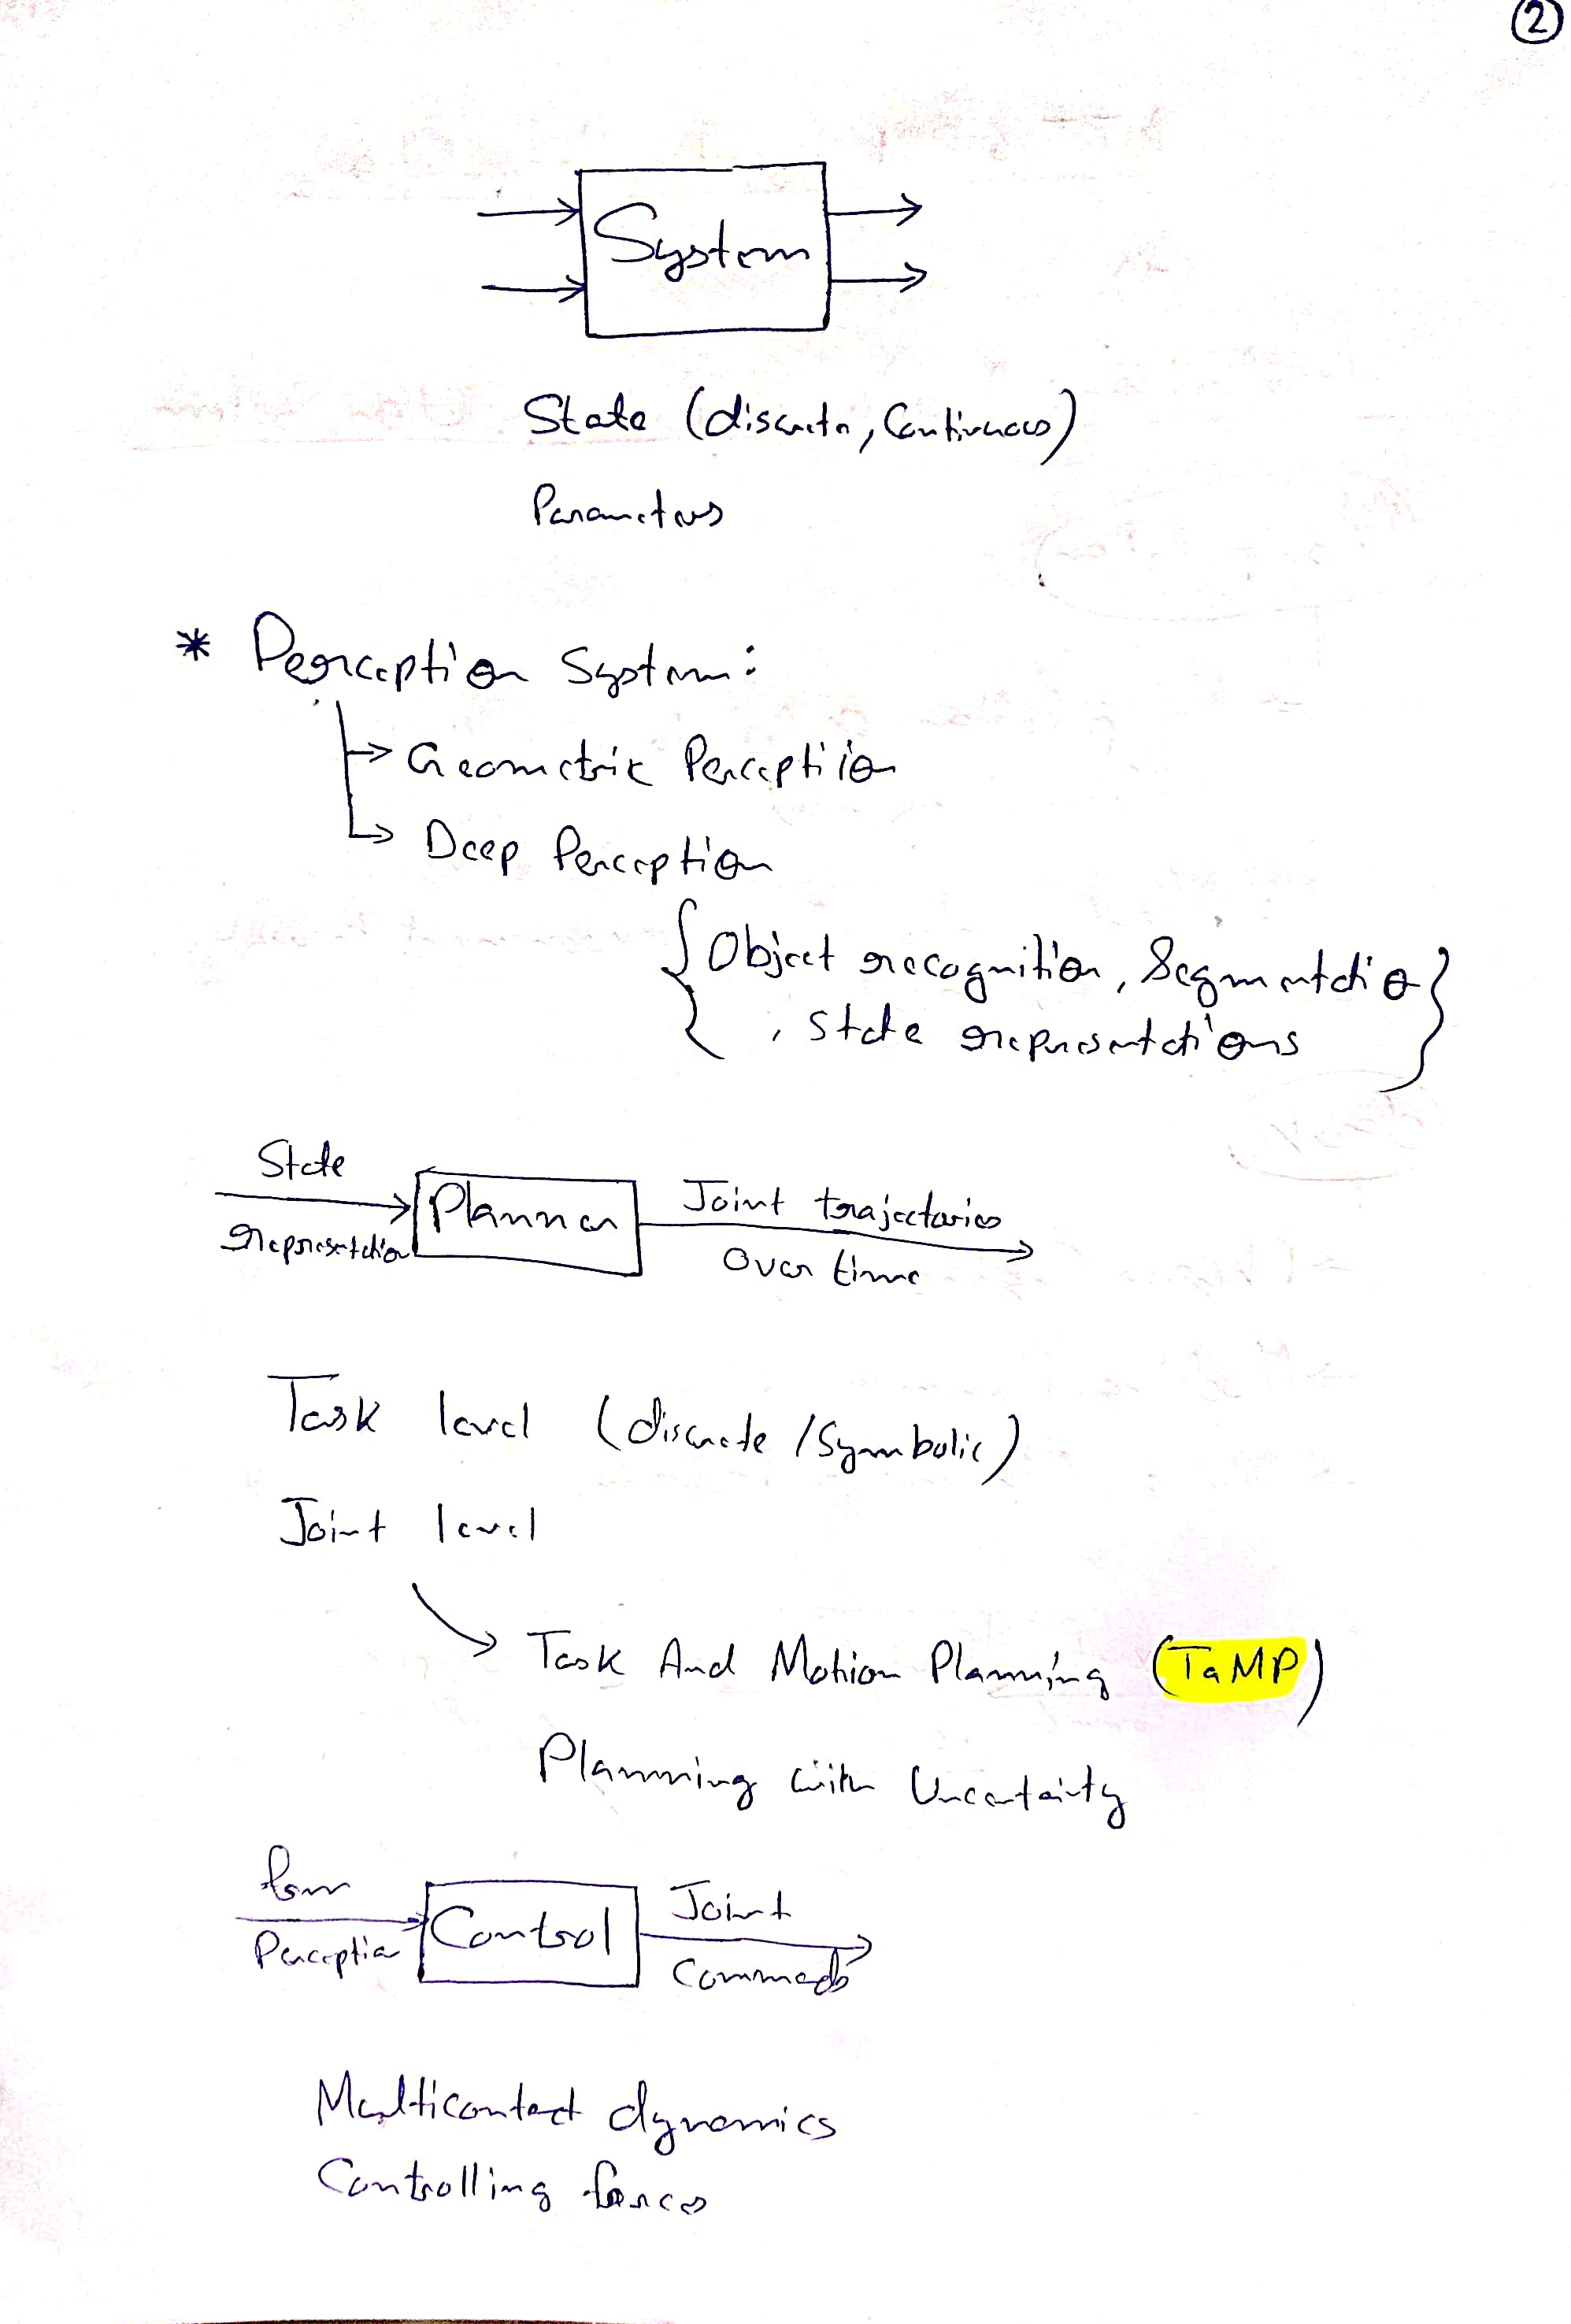 2
System
State (discrete, Continuous)
Parameters
* Perception System:
→ Geometric Perceptiion
→ Deep Perception
{Object recognition, Segmentatio}
, State representations
State
representation
Planner
Joint trajectories
Over time
Task level (discrete / Symbolic)
Joint level
Task And Motion Planning (TaMP)
Planning with Uncertainty
from
Perception
Control
Joint
Commads
Multicontact dynamics
Controlling forces